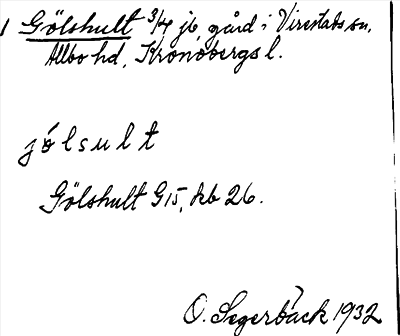 1 Gölshult 3/4 jb, gård i Virestads sn,
Allbo hd, Kronobergs l.
jölsult
Gölshult G15, kb 26.
O. Segerbäck 1932